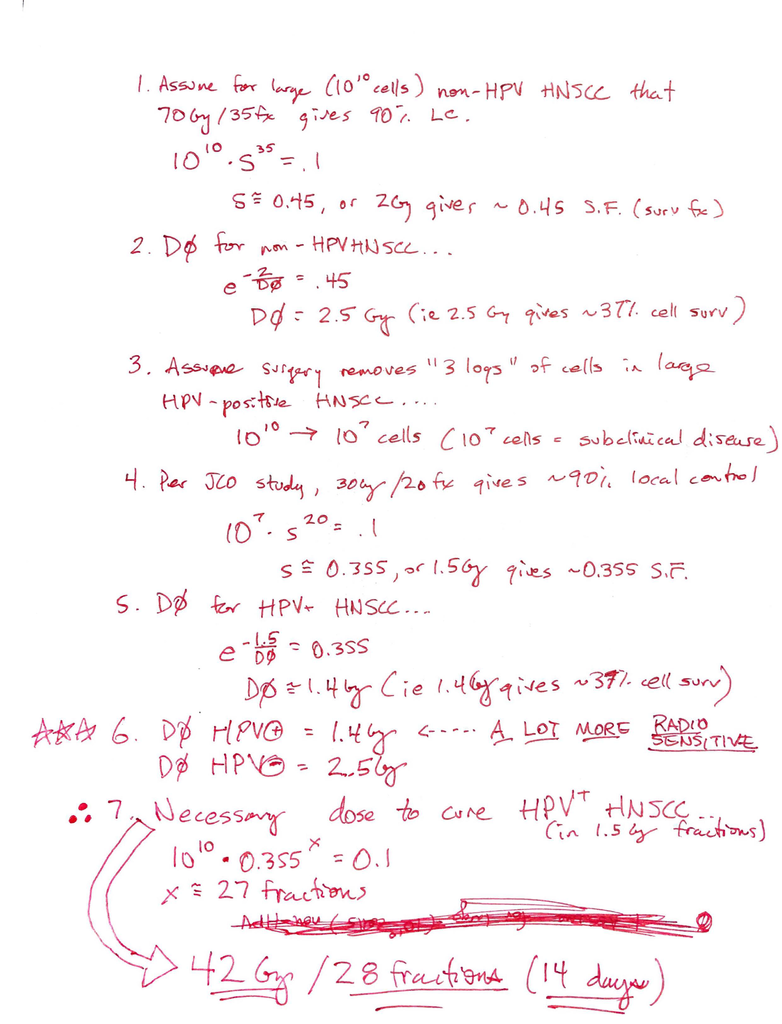 1. Assume for large (10^10 cells) non-HPV HNSCC that
70Gy/35fx gives 90% LC.
10^10 · S^35 = .1
S ≅ 0.45, or 2Gy gives ~ 0.45 S.F. (surv fx)
2. DØ for non-HPV HNSCC...
e^-2/DØ = .45
DØ = 2.5 Gy (ie 2.5 Gy gives ~37% cell surv)
3. Assume surgery removes "3 logs" of cells in large
HPV-positive HNSCC....
10^10 → 10^7 cells (10^7 cells = subclinical disease)
4. Per JCO study, 30Gy/20fx gives ~90% local control
10^7 · S^20 = .1
S ≅ 0.355, or 1.5Gy gives ~0.355 S.F.
5. DØ for HPV+ HNSCC...
e^-1.5/DØ = 0.355
DØ ≅ 1.4Gy (ie 1.4Gy gives ~37% cell surv)
☆☆☆ 6. DØ HPV⊕ = 1.4Gy <----- A LOT MORE RADIO SENSITIVE
DØ HPV⊖ = 2.5Gy
∴ 7. Necessary dose to cure HPV+ HNSCC...
(in 1.5Gy fractions)
10^10 · 0.355^x = 0.1
x ≅ 27 fractions
42 Gy / 28 fractions (14 days)